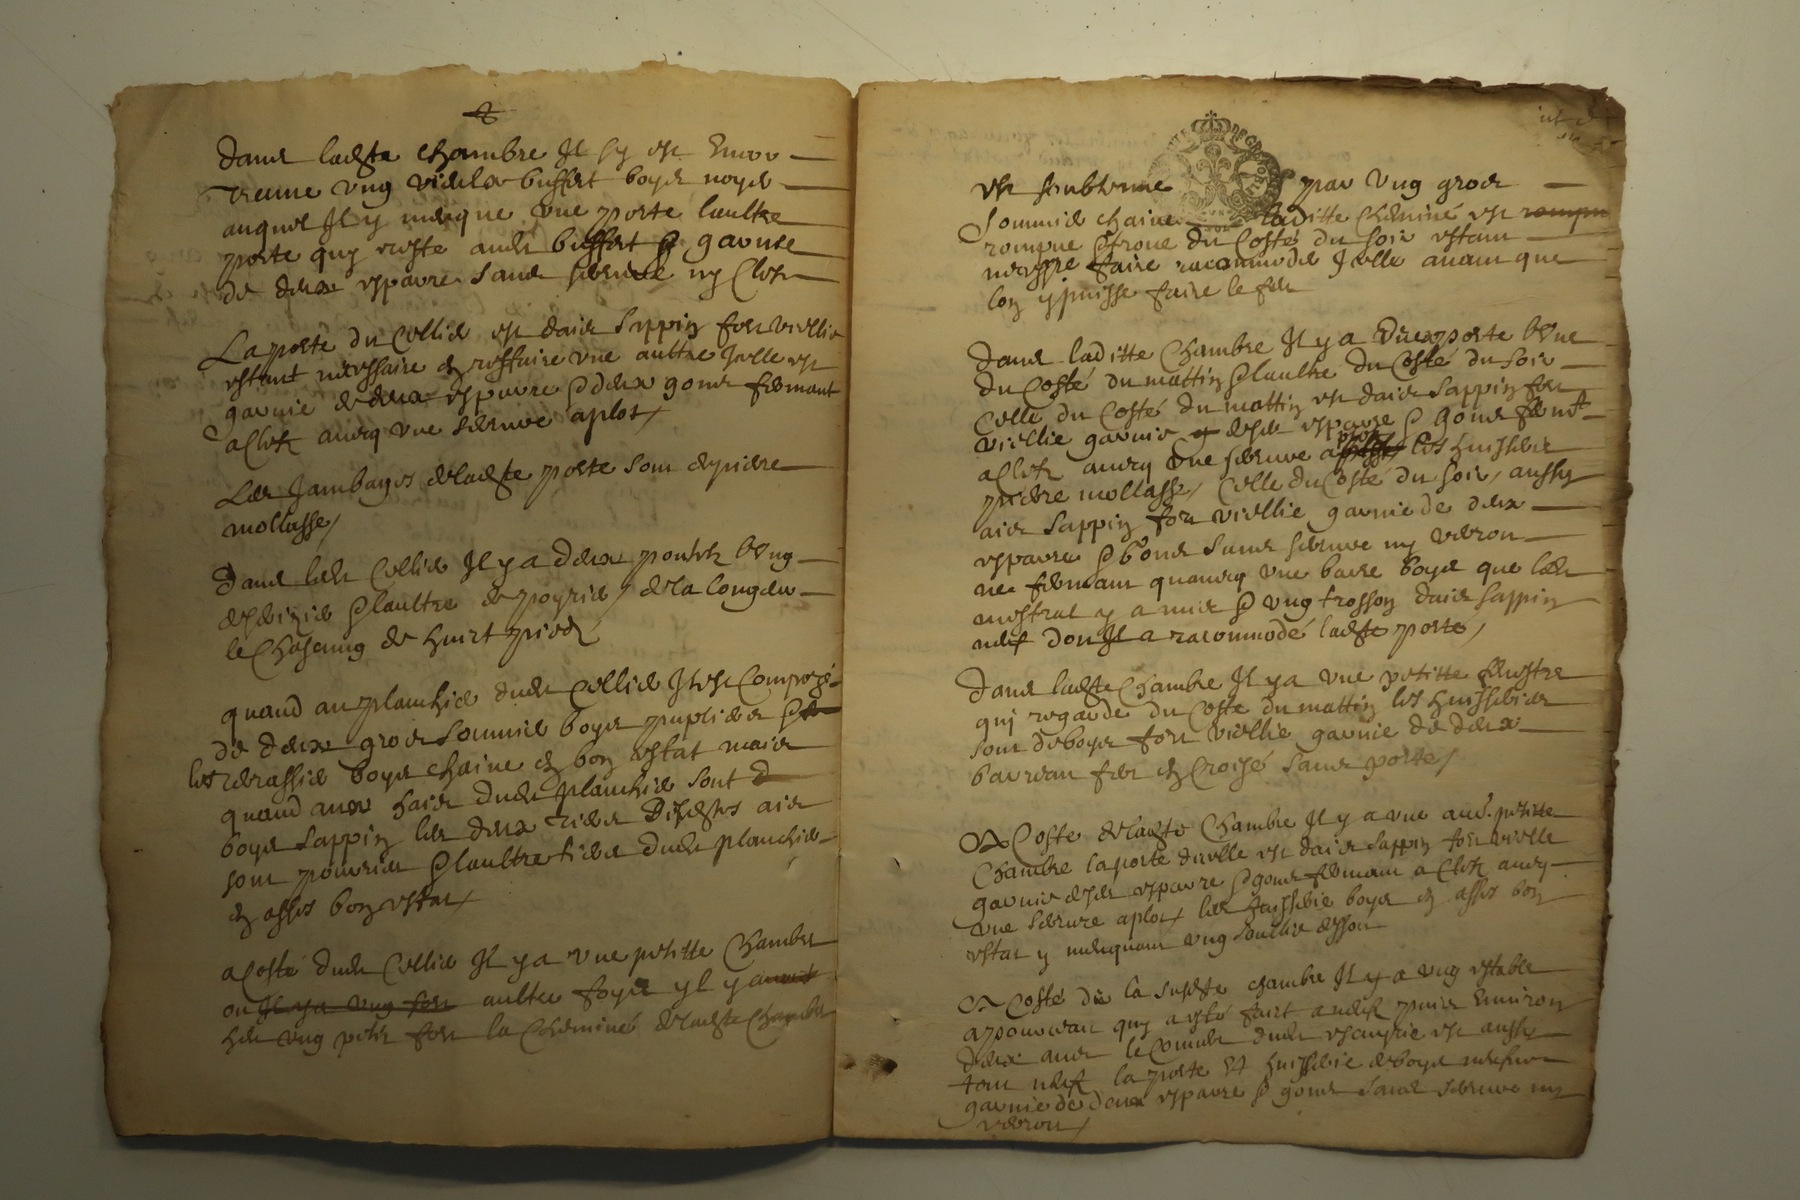 dans ladte chambre Il sy est Encor
treuve ung vieulx buffet boys noyer
auquel Il y menque une porte laultre
porte quy reste audt buffet garnye
de deux esparre sans serrure ny clefz
La porte du Cellier est dais sappin fort viellie
estant necessaire en reffaire une aultre Icelle est
garnie de deux esparre & deux gonds fermant
a clefz avecq une serrure a plot /
Les Jambages de ladte porte sont de pierre
mollasse /
dans ledt Cellier Il y a deux poultz lung
& laultre de poyrier / de la longeur
le Chascung de huict piedz
quand au planchier dudt Cellier Il est Compozé
de deux gros sommier boys pupliers &
les boys chaine en bon estat mais
quand aux hais dudt planchier sont d
boys sappin les deux tiers ais
sont pourries & laultre tiers dudt planchier
en asses bon estat /
a Costé dudt Cellier Il y a une petitte Chambre
ou Il y a ung fort aultre foys yl y avoit
ung petit fort la Cheminé de ladte Chambre
est soubtenue par ung gros
sommier chaine laditte Cheminé est rompu
rompue & troue du Costé du soir estant
necessre faire racommoder Icelle avant que
lon y puisse faire le feu
dans laditte Chambre Il y a deux porte lune
du Costé du mattin & laultre du Costé du soir
Celle du Costé du mattin est dais sappin fort
viellie garnie desdt esparre & gonds fermt
a clefz avecq une serrure a plot les huisserie
pierre mollasse / Celle du Costé du soir / aussy
ais sappin fort viellie garnie de deux
esparre & gonds sans serrure ny verroul
ne fermant quavecq une barre boys que ledt
mestral y a mis & ung trosson dais sappin
neuf dont Il a racommodé ladte porte /
dans ladte Chambre Il y a une petitte fenestre
quj regarde du Costé du mattin les huisserie
sont de boys fort viellie garnie de deux
barreau fer en Croisé sans porte /
A Costé de ladte Chambre Il y a une aut. petitte
Chambre la porte dicelle est dais sappin fort vielle
garnie desdt esparre & gonds fermant a Clefz avecq
une serrure a plot / les huisserie boys en asses bon
estat y menquant ung soullier dessou
A Costé de la susdte chambre Il y a ung estable
quy a esté faict a neuf puis Environ
deux ans le Couvert dudt escuyrie est aussy
tout neuf la porte Et huisserie de boys
garnie de deux esparre & gonds sans serrure ny
verroul /